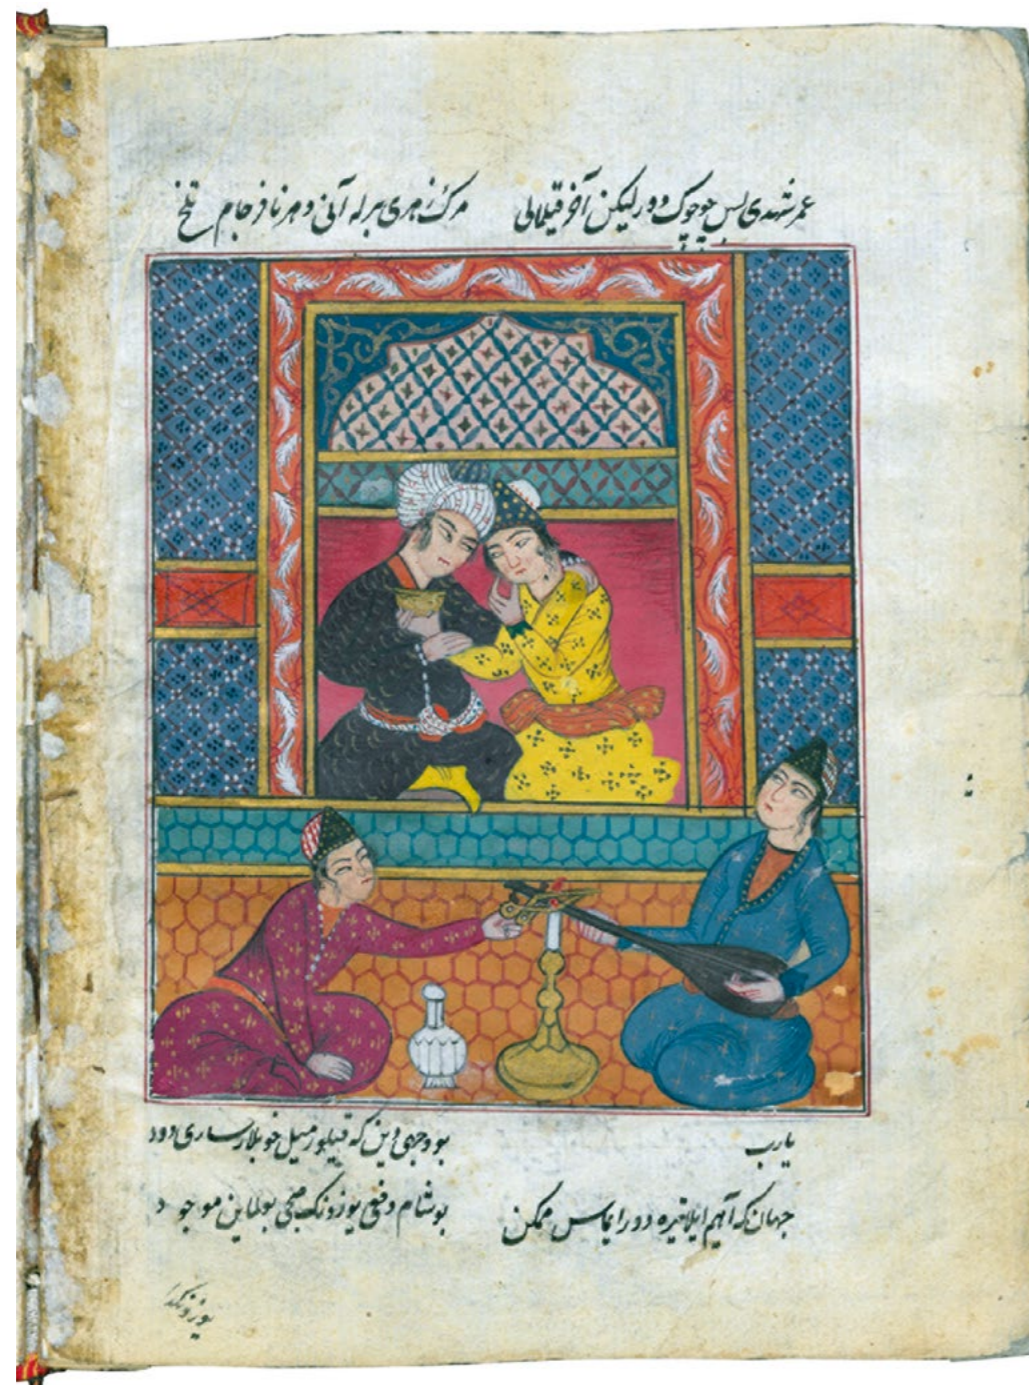 عمر شهدی بس چوچوک دور لیکن آخر قیلمالی مرک زهری بیرله آنی دهر نافرجام تلخ
یارب بو وجهی دین که قیلور میل خوبلار ساری دود
جهان که آهیم ایلا تیره دور ایماس ممکن بو شام دفعی یوزونک صبحی بولماین موجود
یوزونکدا